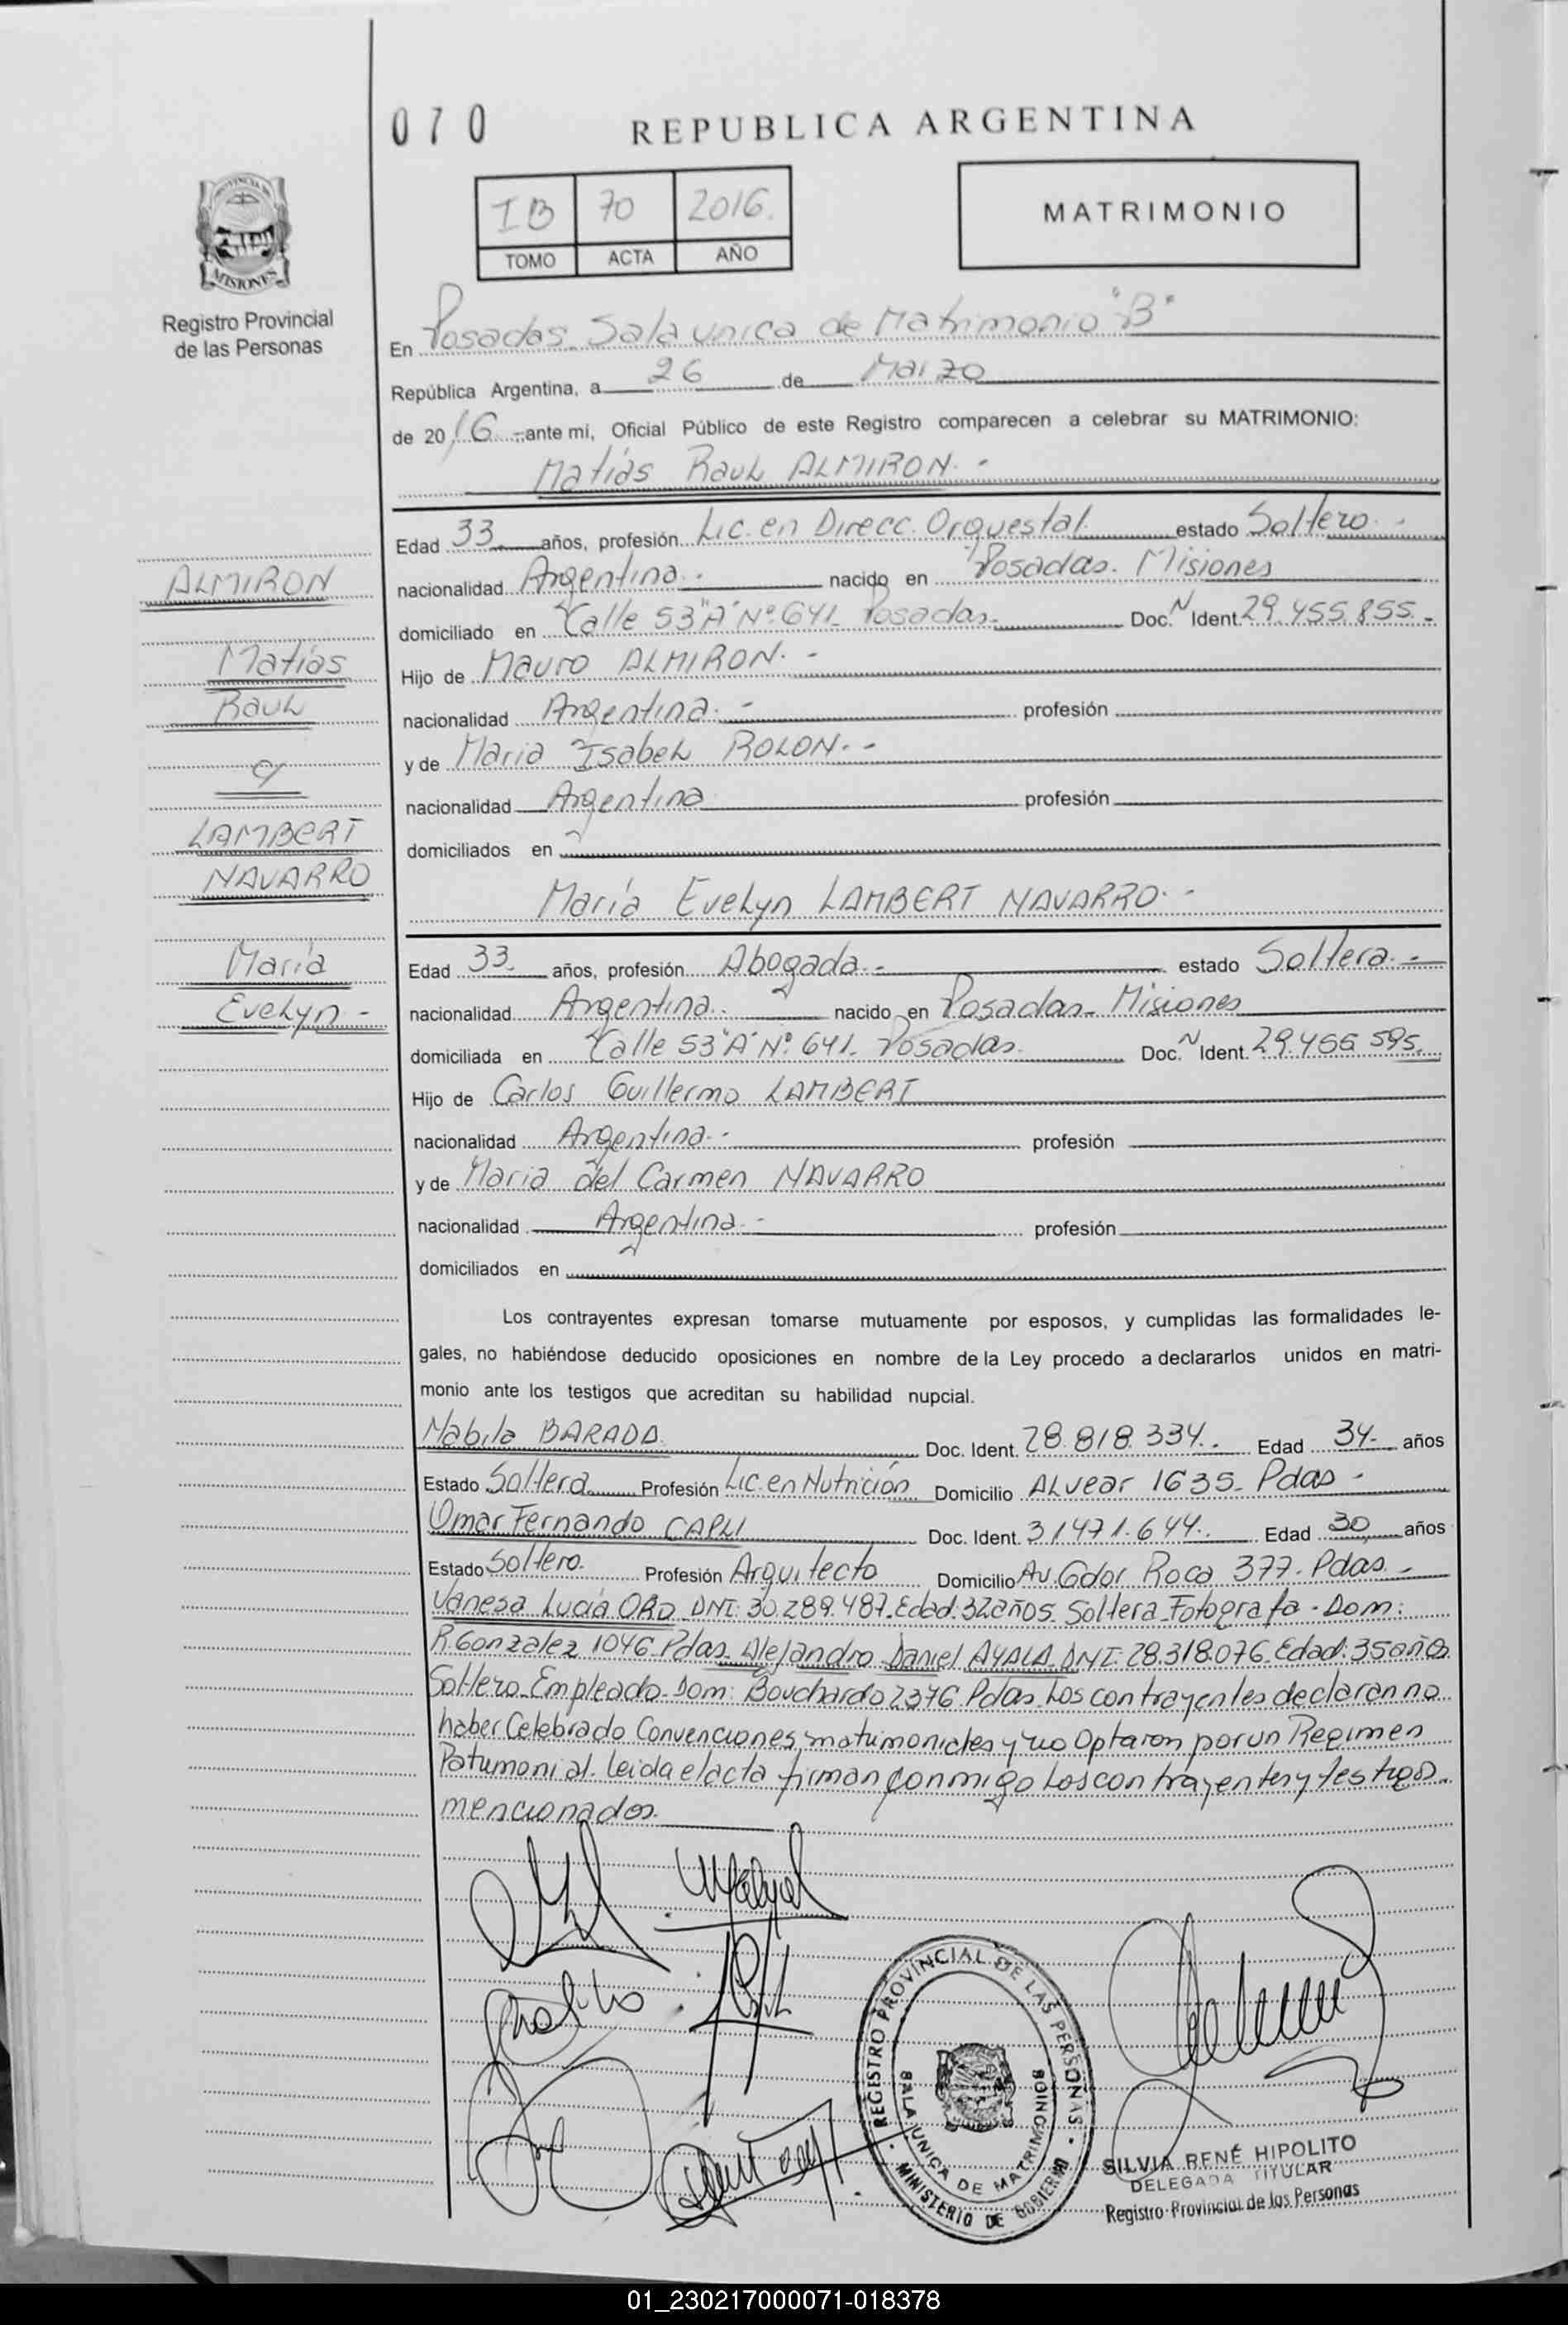 070
REPUBLICA ARGENTINA
PROVINCIA DE
MISIONES
IB 70 2016.
TOMO ACTA AÑO
MATRIMONIO
Registro Provincial
de las Personas
En Posadas. Sala unica de Matrimonio "B"
República Argentina, a 26 de Marzo
de 2016 - ante mi, Oficial Público de este Registro comparecen a celebrar su MATRIMONIO:
Matías Raul ALMIRON. -
Edad 33. años, profesión Lic. en Direcc. Orquestal. estado Soltero. -
ALMIRON
nacionalidad Argentina. - nacido en Posadas. Misiones
domiciliado en Calle 53 "A" Nº 641. Posadas. Doc. N Ident. 29.455.855. -
Matías
Hijo de Mauro ALMIRON. -
Raul
nacionalidad Argentina. - profesión
c/
y de Maria Isabel ROLON. -
nacionalidad Argentina profesión
LAMBERT
domiciliados en
NAVARRO
María Evelyn LAMBERT NAVARRO. -
María
Edad 33. años, profesión Abogada. - estado Soltera. -
Evelyn -
nacionalidad Argentina. nacido en Posadas. Misiones
domiciliada en Calle 53 "A" Nº 641. Posadas. Doc. N Ident. 29.455.595.
Hijo de Carlos Guillermo LAMBERT
nacionalidad Argentina. - profesión
y de Maria del Carmen NAVARRO
nacionalidad Argentina. - profesión
domiciliados en
Los contrayentes expresan tomarse mutuamente por esposos, y cumplidas las formalidades le-
gales, no habiéndose deducido oposiciones en nombre de la Ley procedo a declararlos unidos en matri-
monio ante los testigos que acreditan su habilidad nupcial.
Nabila BARADA Doc. Ident. 28.818.334. Edad 34. años
Estado Soltera Profesión Lic. en Nutrición Domicilio Alvear 1635. Pdas -
Omar Fernando CAPLI Doc. Ident. 31471.644. Edad 30, años
Estado Soltero. Profesión Arquitecto Domicilio Av. Gdor Roca 377. Pdas. -
Vanesa Lucía ORD DNI: 30.289.487. Edad: 32años. Soltera. Fotografa. Dom:
R. Gonzalez 1046 Pdas. Alejandro Daniel AYALA DNI. 28.318.076. Edad: 35 años
Soltero. Empleado. Dom: Bouchardo 2376 Pdas. Los contrayentes declaran no
haber Celebrado Convenciones matrimoniales y no Optaron por un Regimen
Patrimonial. Leida el acta firman conmigo Los contrayentes y testigos
mencionados.
REGISTRO PROVINCIAL DE LAS PERSONAS
SALA UNICA DE MATRIMONIOS
MINISTERIO DE GOBIERNO
SILVIA RENÉ HIPOLITO
DELEGADA TITULAR
Registro Provincial de las Personas
01_230217000071-018378